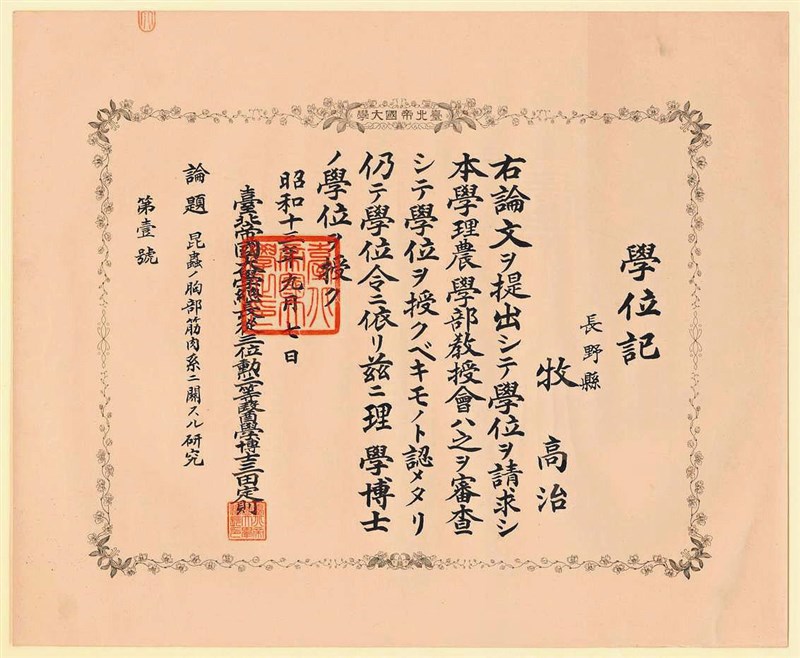 臺北帝國大學
學位記
長野縣
牧 高治
右論文ヲ提出シテ學位ヲ請求シ
本學理農學部教授會ハ之ヲ審査
シテ學位ヲ授クベキモノト認メタリ
仍テ學位令ニ依リ茲ニ理學博士
ノ學位ヲ授ク
昭和十三年九月七日
臺北帝國大學總長從三位勲二等醫學博士三田定則
論題 昆蟲ノ胸部筋肉系ニ關スル研究
第壹號